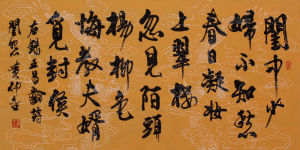 閨中少
婦不知愁
春日凝妝
上翠樓
忽見陌頭
楊柳色
悔教夫婿
覓封侯
右錄王昌齡詩
閨怨